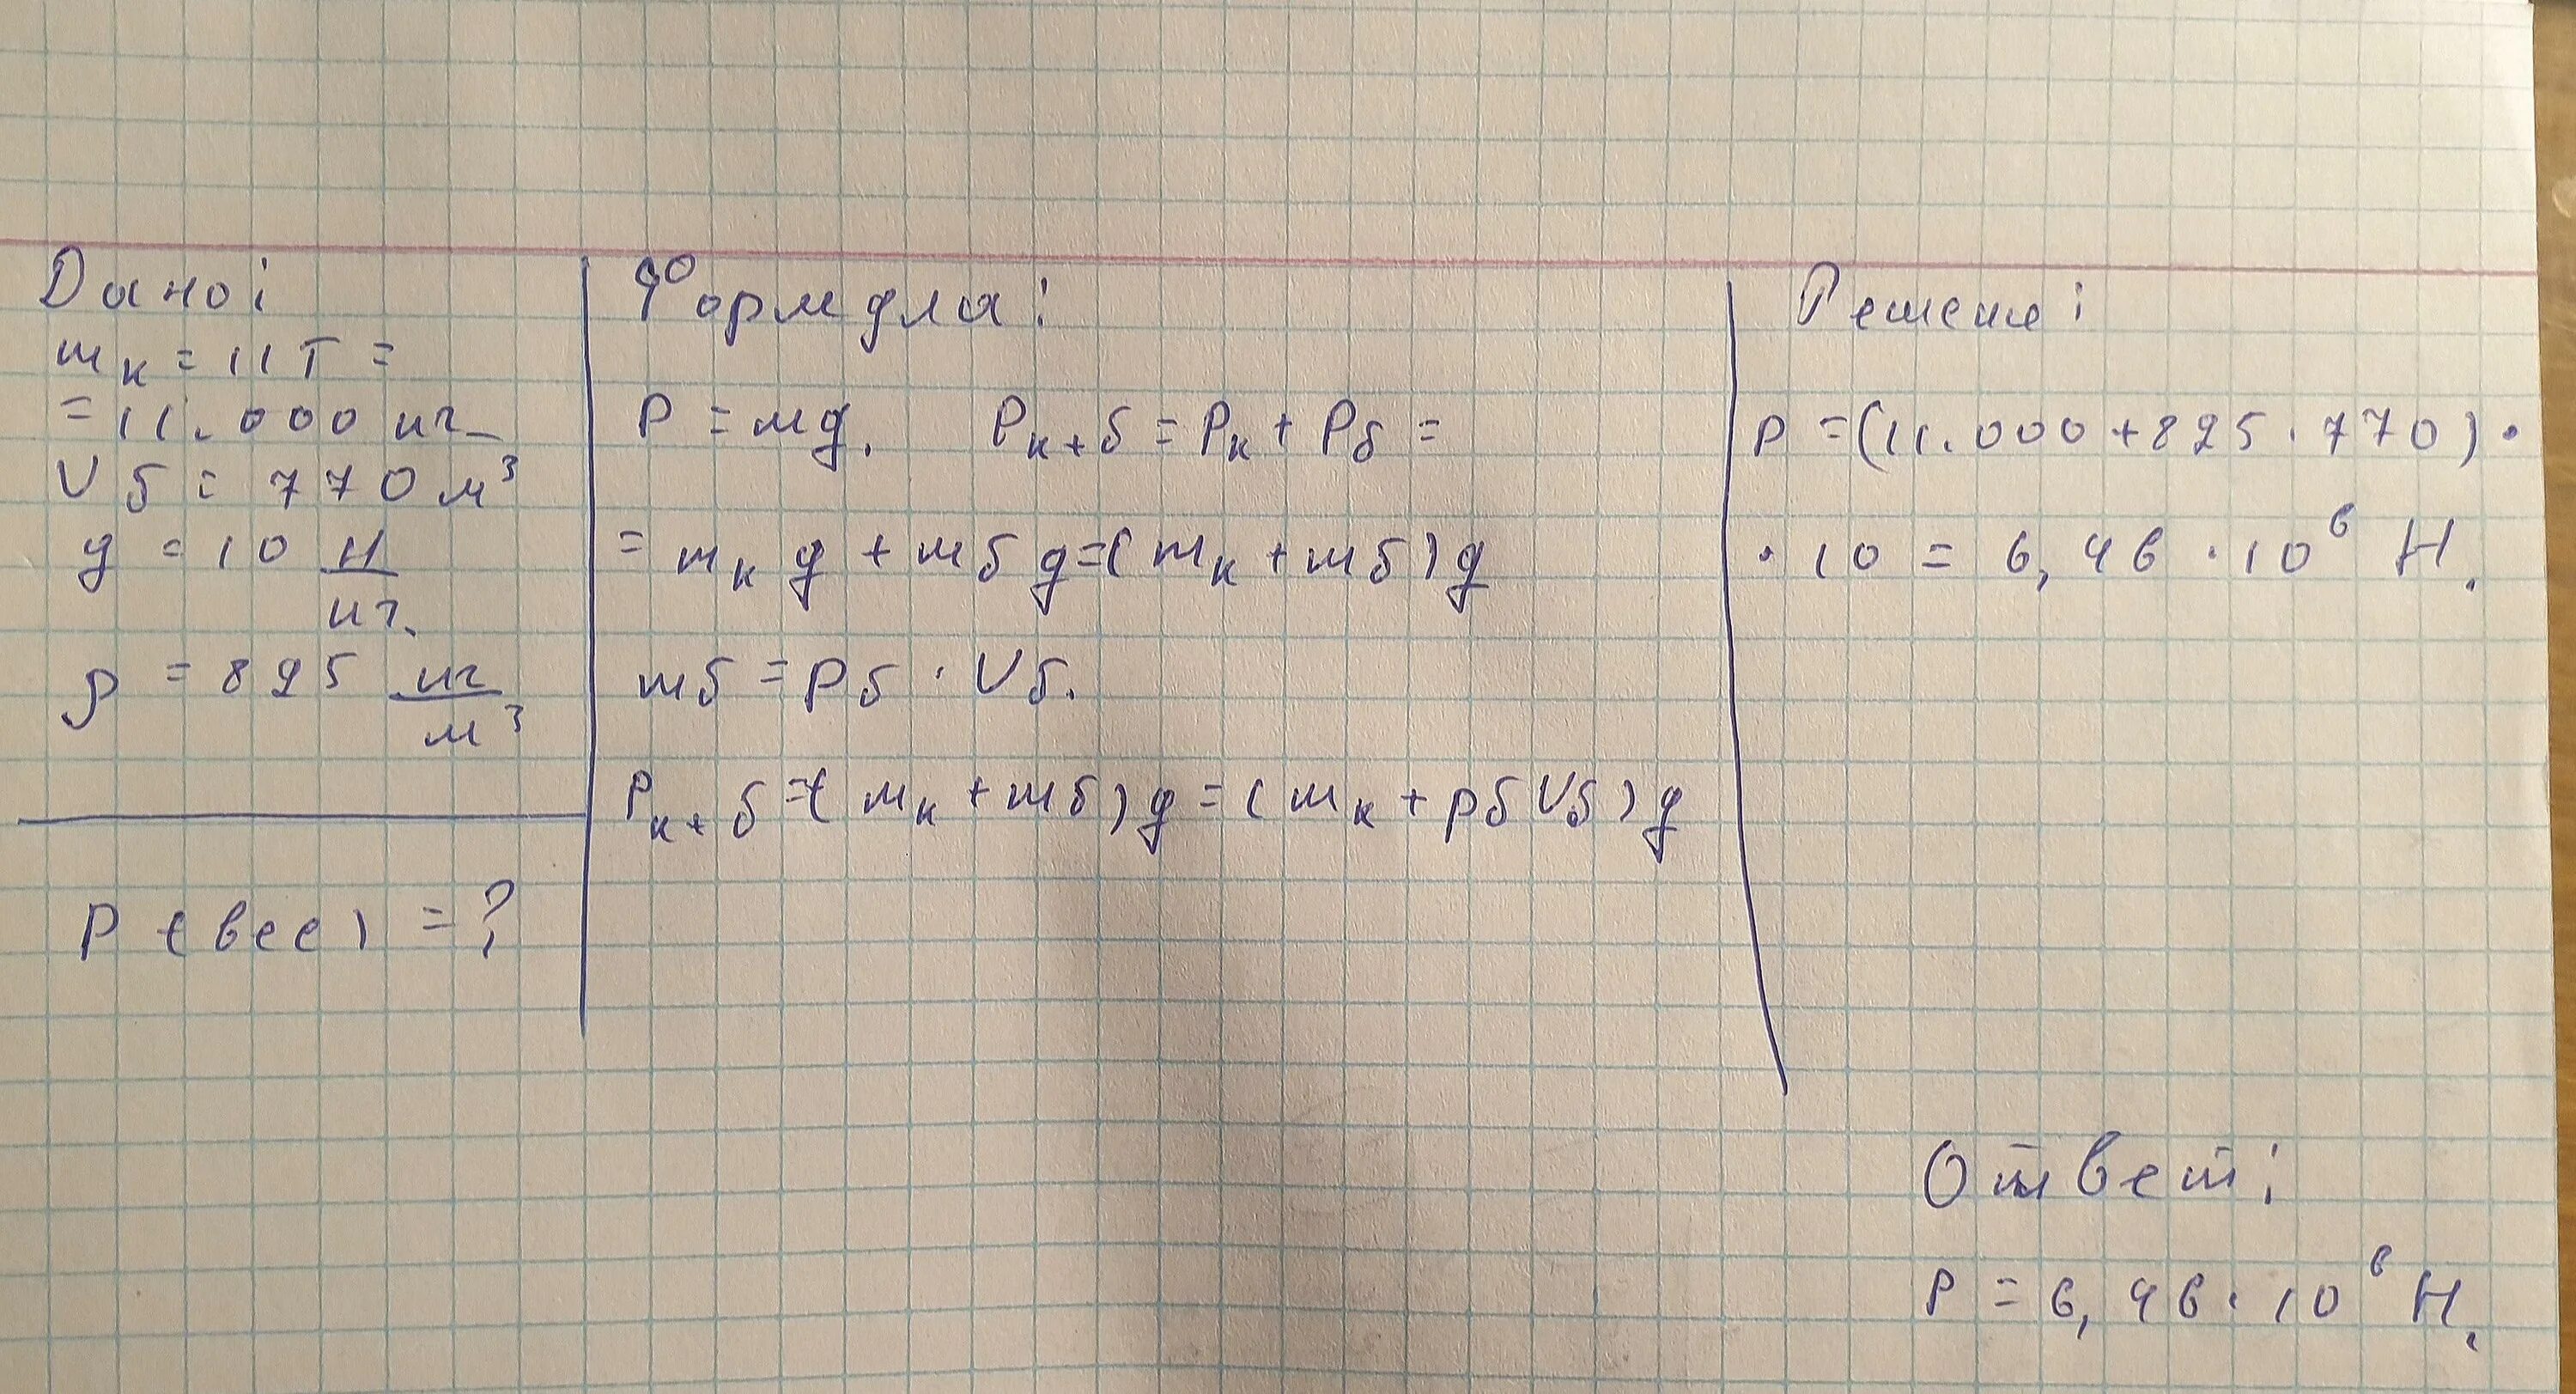 Дано:
mк = 11 Т =
= 11.000 кг
Vб = 770 м³
g = 10 Н
кг.
ρ = 825 кг
м³
P (вес) = ?
Формула:
P = mg. Pк+б = Pк + Pб =
= mк g + mб g = (mк + mб) g
mб = ρб · Vб.
Pк+б = (mк + mб) g = (mк + ρб Vб) g
Решение:
P = (11.000 + 825 · 770) ·
· 10 = 6,46 · 10⁶ Н.
Ответ:
P = 6,46 · 10⁶ Н.